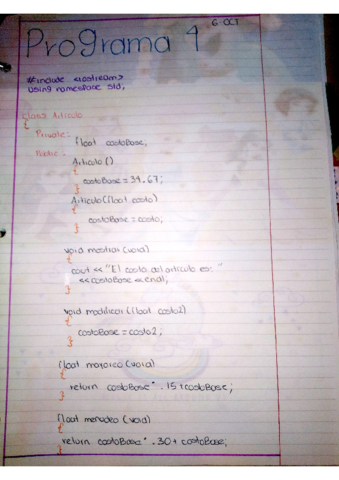 6 OCT
Programa 1
#include <iostream>
using namespace std;
class Articulo
{
Private:
float costoBase;
Public:
Articulo()
{
costoBase = 34.67;
}
Articulo(float costo)
{
costoBase = costo;
}
void mostrar (void)
{
cout << "El costo del articulo es: "
<< costoBase << endl;
}
void modificar (float costo2)
{
costoBase = costo2;
}
float mayoreo (void)
{
return costoBase * .15 + costoBase;
}
float menudeo (void)
{
return costoBase * .30 + costoBase;
}